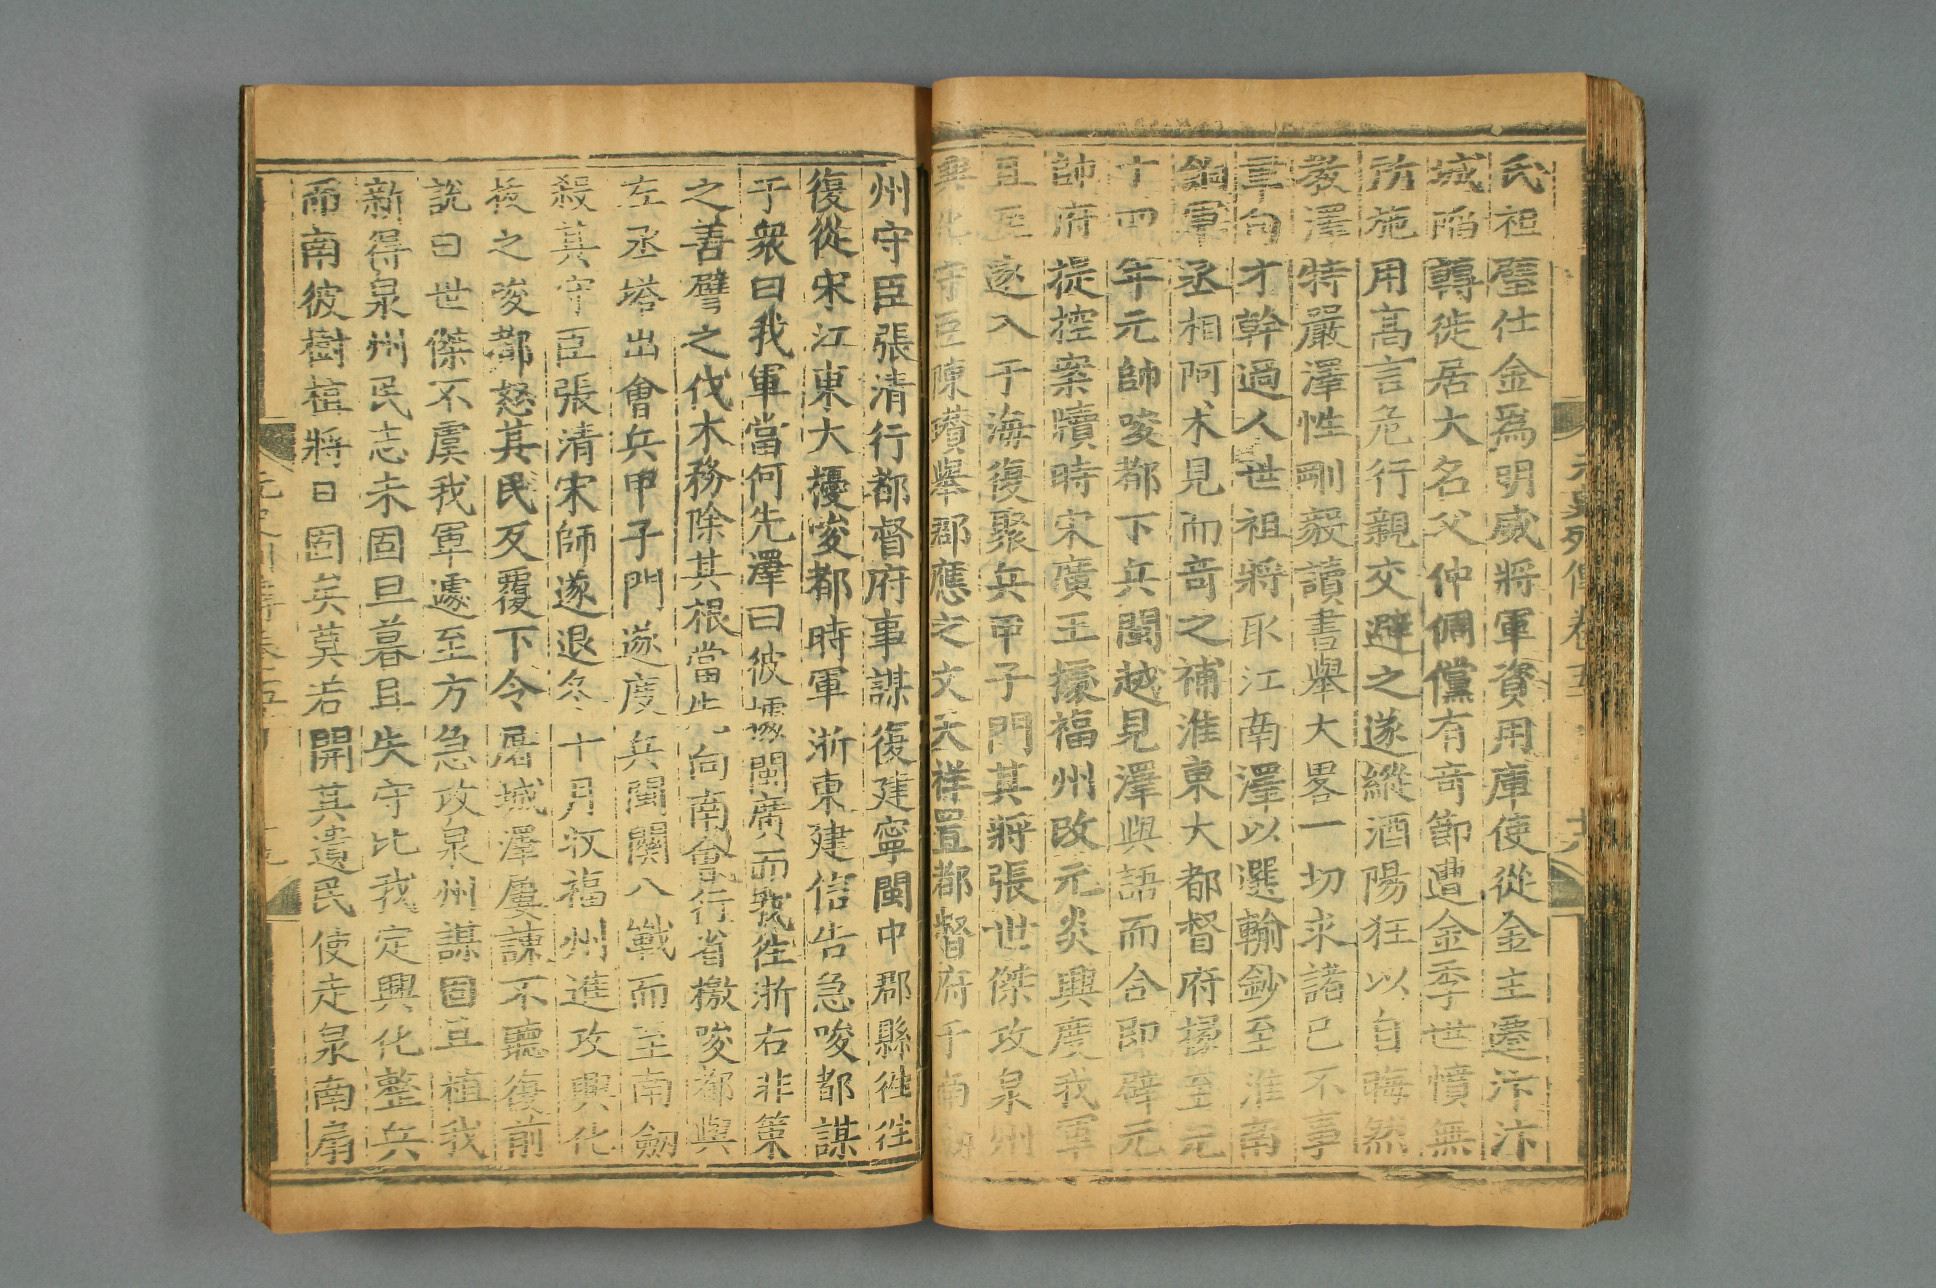 氏祖璧仕金爲明威將軍資用庫使從金主遷汴汴
城陷轉徙居大名父仲倜儻有竒節遭金季世憤無
所施用髙言危行親交避之遂縱酒陽狂以自晦然
教澤特嚴澤性剛毅讀書舉大畧一切求諸己不事
章句才幹過人世祖將取江南澤以選輸鈔至淮南
餉軍丞相阿术見而竒之補淮東大都督府掾至元
十四年元帥唆都下兵閩越見澤與語而合即辟元
帥府提控案牘時宋廣王據福州改元炎興廣我軍
且至遂入于海復聚兵甲子門其將張世傑攻泉州
興化守臣陳瓚舉郡應之文天祥置都督府于南劒
州守臣張清行都督府事謀復建寧閩中郡縣徃徃
復從宋江東大擾唆都時軍浙東建信告急唆都謀
于衆曰我軍當何先澤曰彼據閩廣而我徃浙右非策
之善譬之伐木務除其根當先向南會行省檄唆都與
左丞塔出會兵甲子門遂度兵閩關八戰而至南劒
殺其守臣張清宋師遂退冬十月収福州進攻興化
拔之唆都怒其民反覆下令屠城澤屢諫不聽復前
說曰世傑不虞我軍遽至方急攻泉州謀固宜植我
新得泉州民志未固旦暮且失守比我定興化整兵
而南彼樹植將日固矣莫若開其遺民使走泉南扇
元史列傳卷五 十六